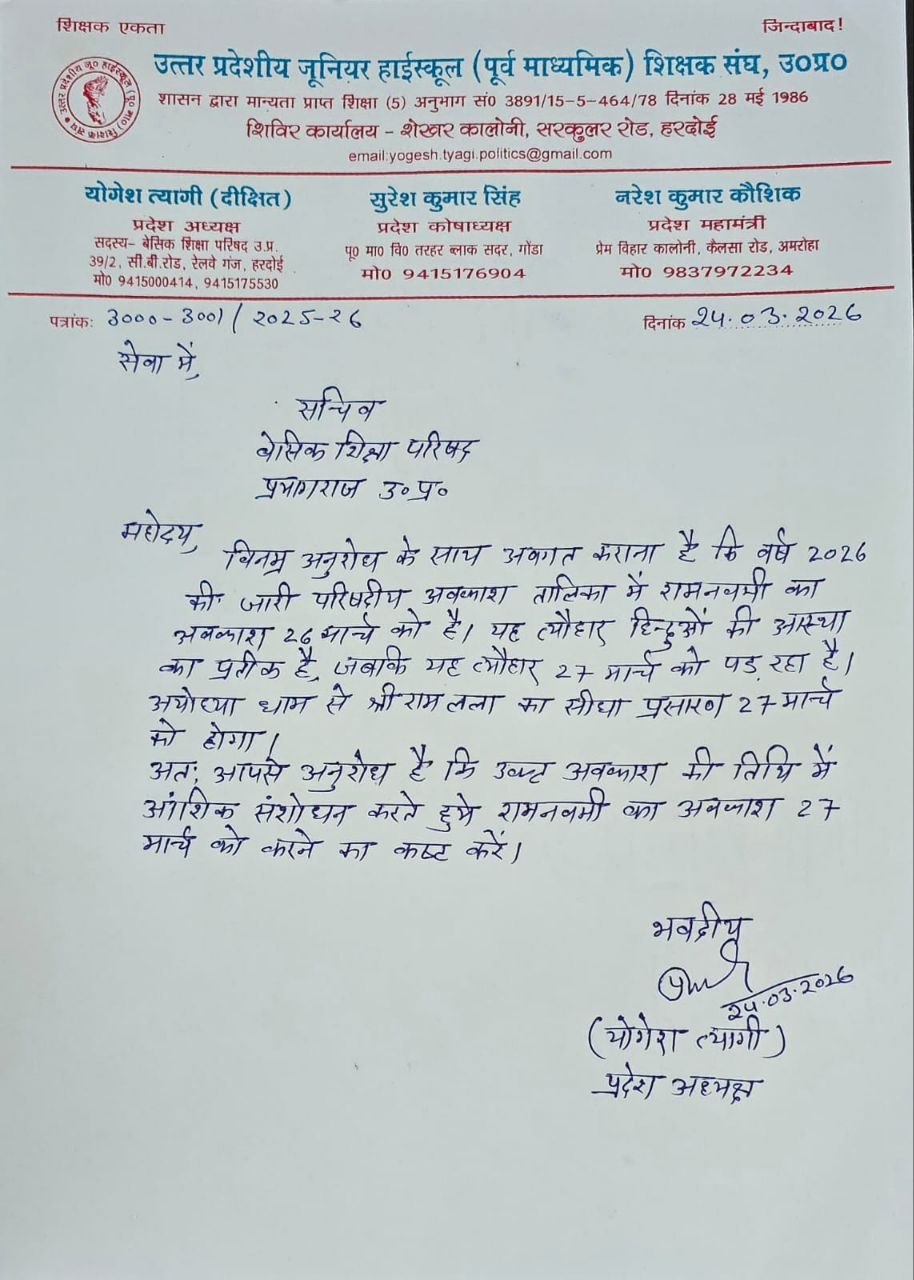 शिक्षक एकता
जिन्दाबाद!
उत्तर प्रदेशीय जूनियर हाईस्कूल (पूर्व माध्यमिक) शिक्षक संघ, उ०प्र०
शासन द्वारा मान्यता प्राप्त शिक्षा (5) अनुभाग सं० 3891/15-5-464/78 दिनांक 28 मई 1986
शिविर कार्यालय - शेखर कालोनी, सरकुलर रोड, हरदोई
email:yogesh.tyagi.politics@gmail.com
योगेश त्यागी (दीक्षित)
प्रदेश अध्यक्ष
सदस्य- बेसिक शिक्षा परिषद उ.प्र.
39/2, सी.बी.रोड, रेलवे गंज, हरदोई
मो० 9415000414, 9415175530
सुरेश कुमार सिंह
प्रदेश कोषाध्यक्ष
पू० मा० वि० तरहर ब्लाक सदर, गोंडा
मो० 9415176904
नरेश कुमार कौशिक
प्रदेश महामंत्री
प्रेम विहार कालोनी, कैलसा रोड, अमरोहा
मो० 9837972234
पत्रांक: 3000-3001/2025-26
दिनांक 24.03.2026
सेवा में,
सचिव
बेसिक शिक्षा परिषद
प्रयागराज उ०प्र०
महोदय,
विनम्र अनुरोध के साथ अवगत कराना है कि वर्ष 2026
की जारी परिषदीय अवकाश तालिका में रामनवमी का
अवकाश 26 मार्च को है। यह त्यौहार हिन्दुओं की आस्था
का प्रतीक है, जबकि यह त्यौहार 27 मार्च को पड़ रहा है।
अयोध्या धाम से श्री राम लला का सीधा प्रसारण 27 मार्च
को होगा।
अतः आपसे अनुरोध है कि उक्त अवकाश की तिथि में
आंशिक संशोधन करते हुये रामनवमी का अवकाश 27
मार्च को करने का कष्ट करें।
भवदीय
24.03.2026
(योगेश त्यागी)
प्रदेश अध्यक्ष